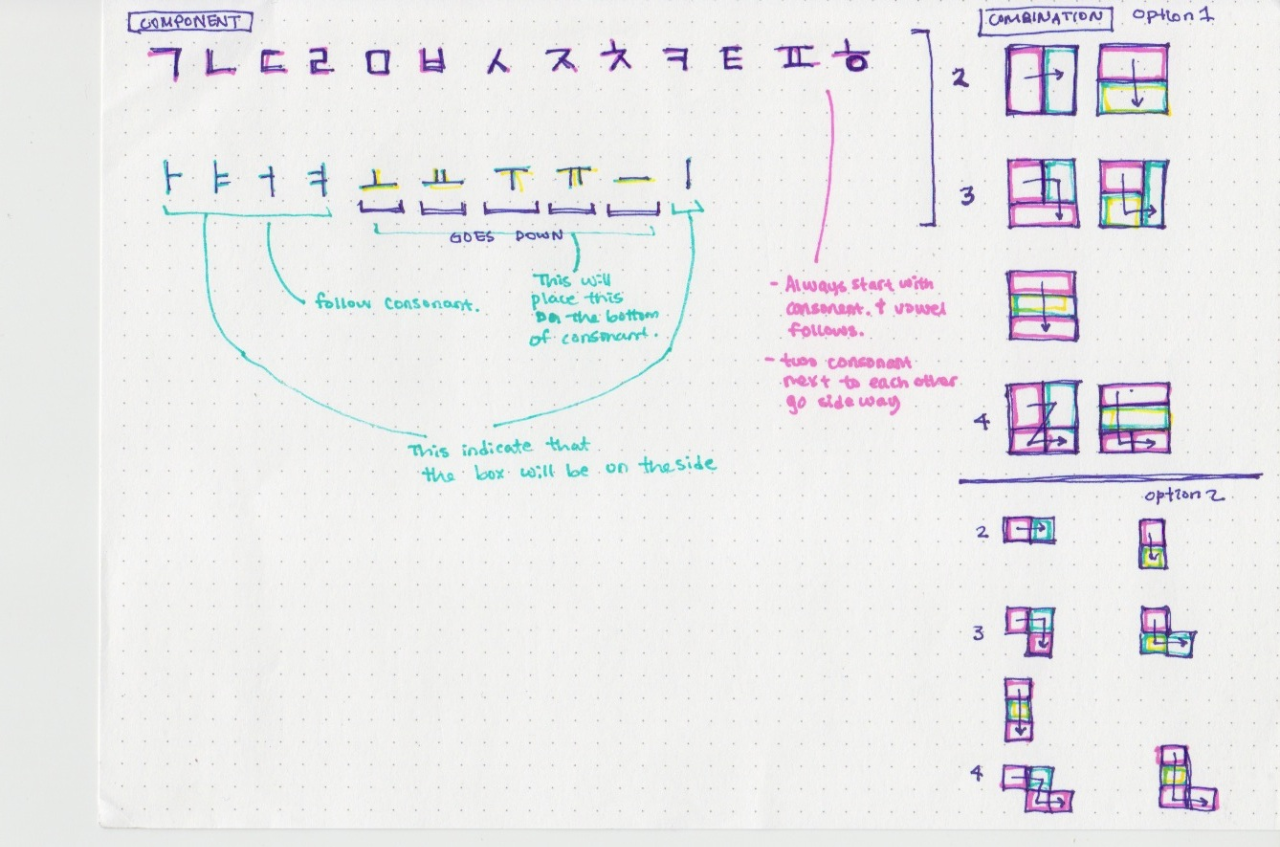 COMPONENT
ㄱ ㄴ ㄷ ㄹ ㅁ ㅂ ㅅ ㅈ ㅊ ㅋ ㅌ ㅍ ㅎ
ㅏ ㅑ ㅓ ㅕ ㅗ ㅛ ㅜ ㅠ ㅡ ㅣ
GOES DOWN
follow consonant.
This will
place this
on the bottom
of consonant.
This indicate that
the box will be on the side
- Always start with
consonent. & vowel
follows.
- two consonant
next to each other
go side way
COMBINATION option 1
2
3
4
option 2
2
3
4